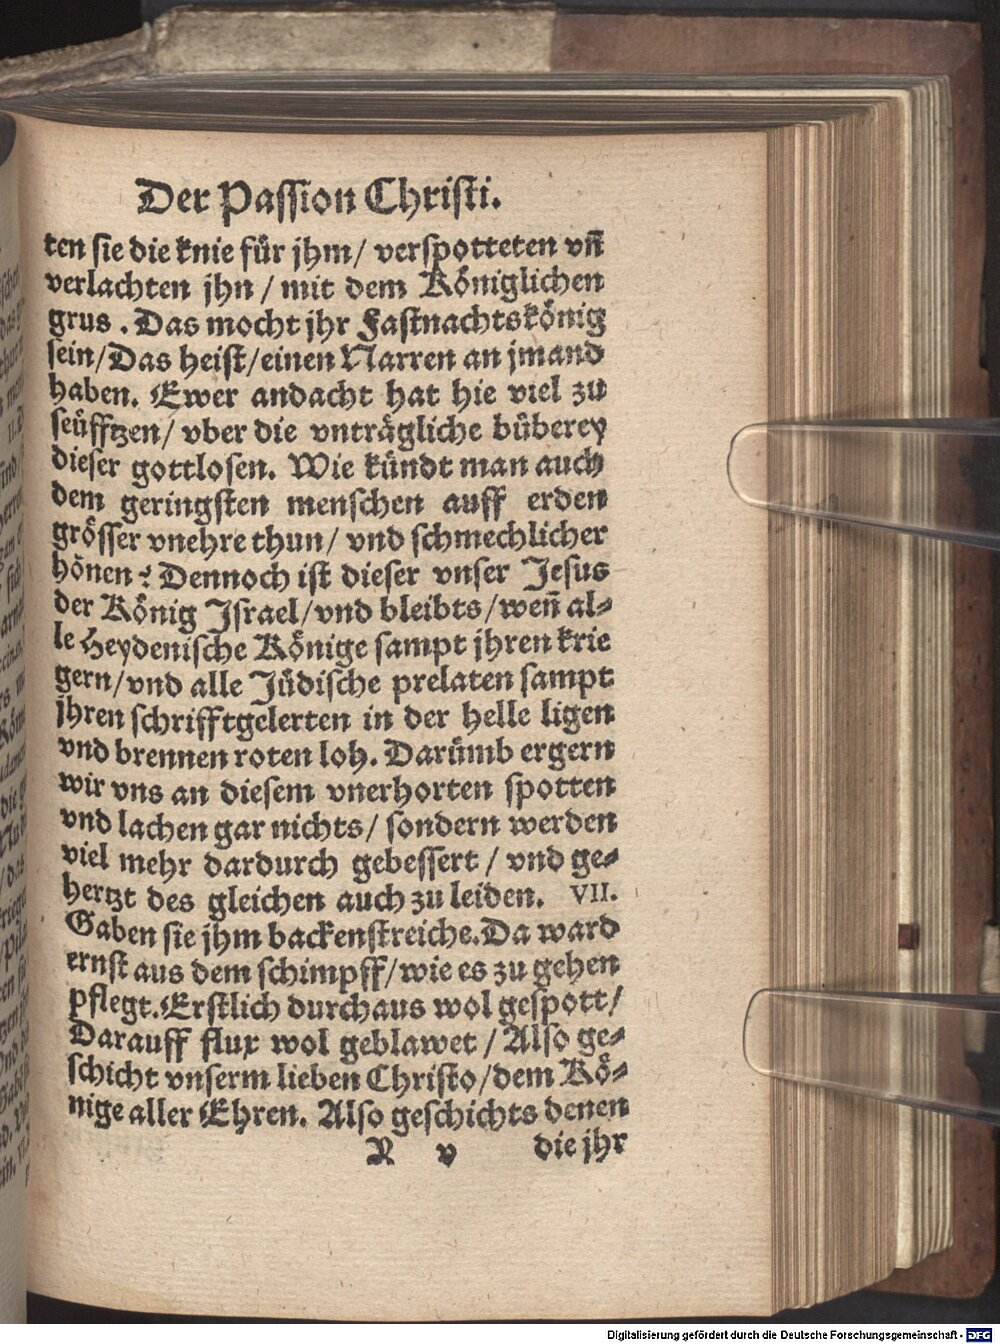 Der Passion Christi.
ten sie die knie für jhm/ verspotteten vn̄
verlachten jhn / mit dem Königlichen
grus . Das mocht jhr Fastnachtskönig
sein/Das heist/einen Narren an jmand
haben. Ewer andacht hat hie viel zu
seüfftzen/ vber die vnträgliche büberey
dieser gottlosen. Wie kündt man auch
dem geringsten menschen auff erden
grösser vnehre thun/ vnd schmechlicher
hönen? Dennoch ist dieser vnser Jesus
der König Jsrael/vnd bleibts/wen̄ al⸗
le Heydenische Könige sampt jhren krie
gern/vnd alle Jüdische prelaten sampt
jhren schrifftgelerten in der helle ligen
vnd brennen roten loh. Darümb ergern
wir vns an diesem vnerhorten spotten
vnd lachen gar nichts/ sondern werden
viel mehr dardurch gebessert / vnd ge⸗
hertzt des gleichen auch zu leiden. VII.
Gaben sie jhm backenstreiche.Da ward
ernst aus dem schimpff/wie es zu gehen
pflegt.Erstlich durchaus wol gespott/
Darauff flux wol geblawet / Also ge⸗
schicht vnserm lieben Christo/dem Kö⸗
nige aller Ehren. Also geschichts denen
R v die jhr
Digitalisierung gefördert durch die Deutsche Forschungsgemeinschaft - DFG